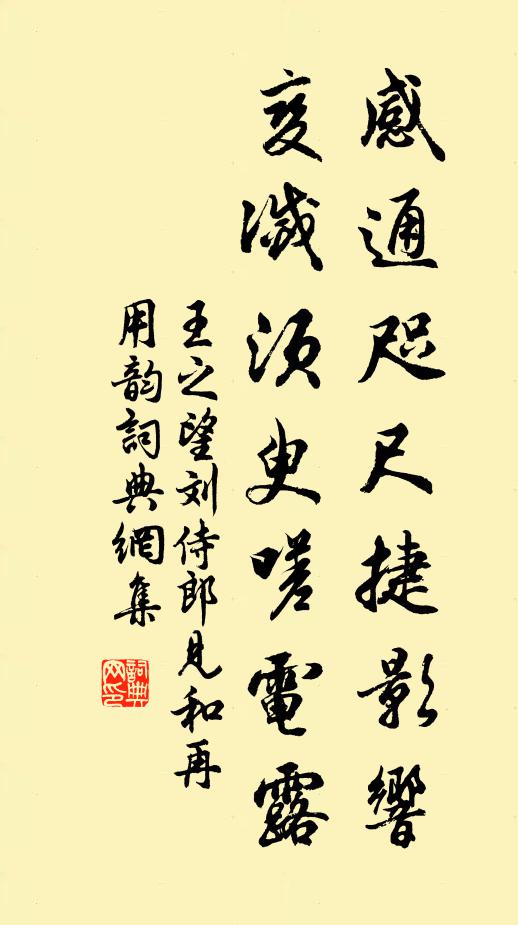 感通咫尺捷影響
变滅須臾嗟電露
王之望刘侍郎見和再
用韵詞典網集
詞典网印